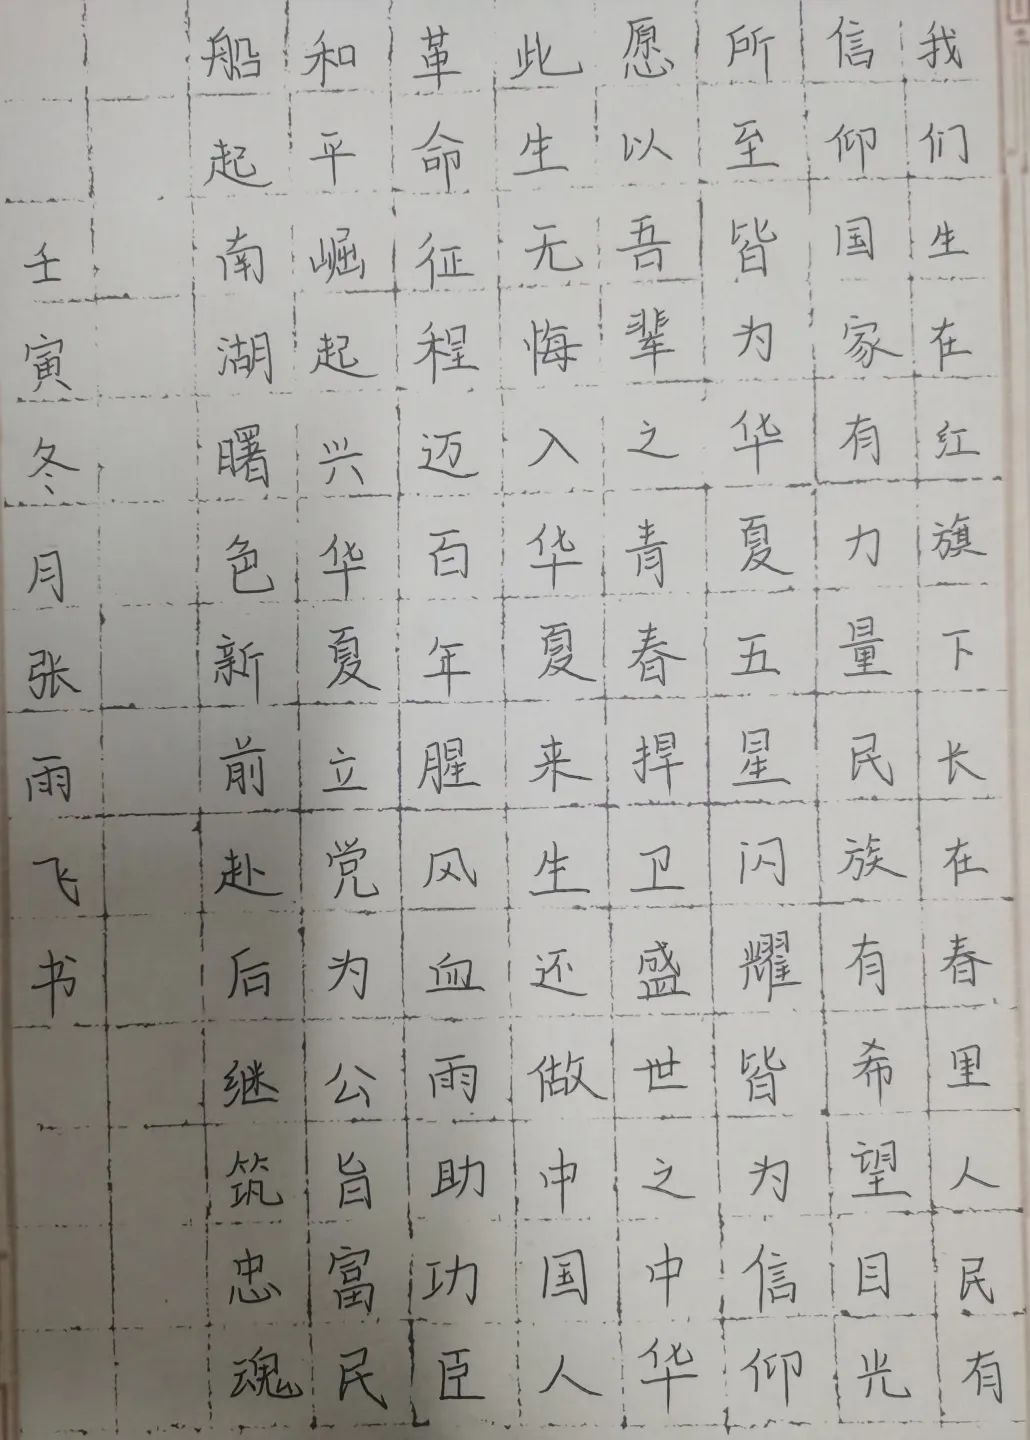 我们生在红旗下长在春里人民有
信仰国家有力量民族有希望目光
所至皆为华夏五星闪耀皆为信仰
愿以吾辈之青春捍卫盛世之中华
此生无悔入华夏来生还做中国人
革命征程迈百年腥风血雨助功臣
和平崛起兴华夏立党为公旨富民
船起南湖曙色新前赴后继筑忠魂
壬寅冬月张雨飞书